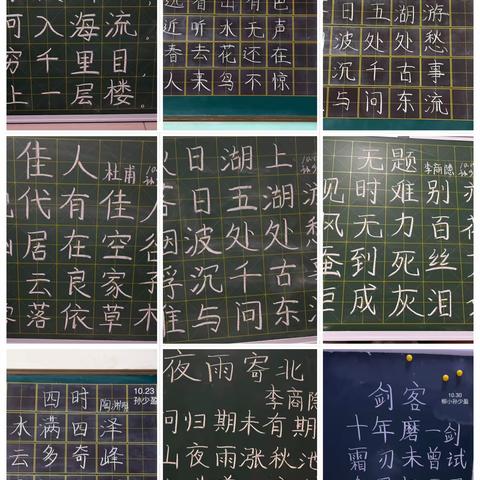 河入海流,
穷千里目,
上一层楼。
远看山有色
近听水无声
春去花还在
人来鸟不惊
日五湖游
波处处愁
沉千古事
与问东流
佳人 杜甫
代有佳人
居在空谷
云良家子
落依草木
日湖上
日五湖游
烟波处处愁
浮沉千古事
谁与问东流
无题 李商隐
时难别亦
风无力百花
蚕到死丝
炬成灰泪
10.23
孙少盈
四时 陶渊明
水满四泽
云多奇峰
夜雨寄北
李商隐
问归期未有期
山夜雨涨秋池
10.30
柳小孙少盈
剑客
十年磨一剑
霜刃未曾试